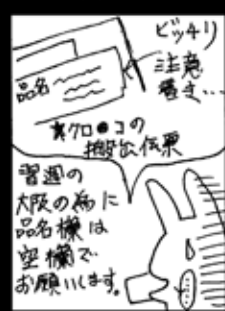 ビッチリ
注意
書き…
品名
※クロ●コの
搬出伝票
習週の
大阪の為に
品名欄は
空欄で
お願いします。